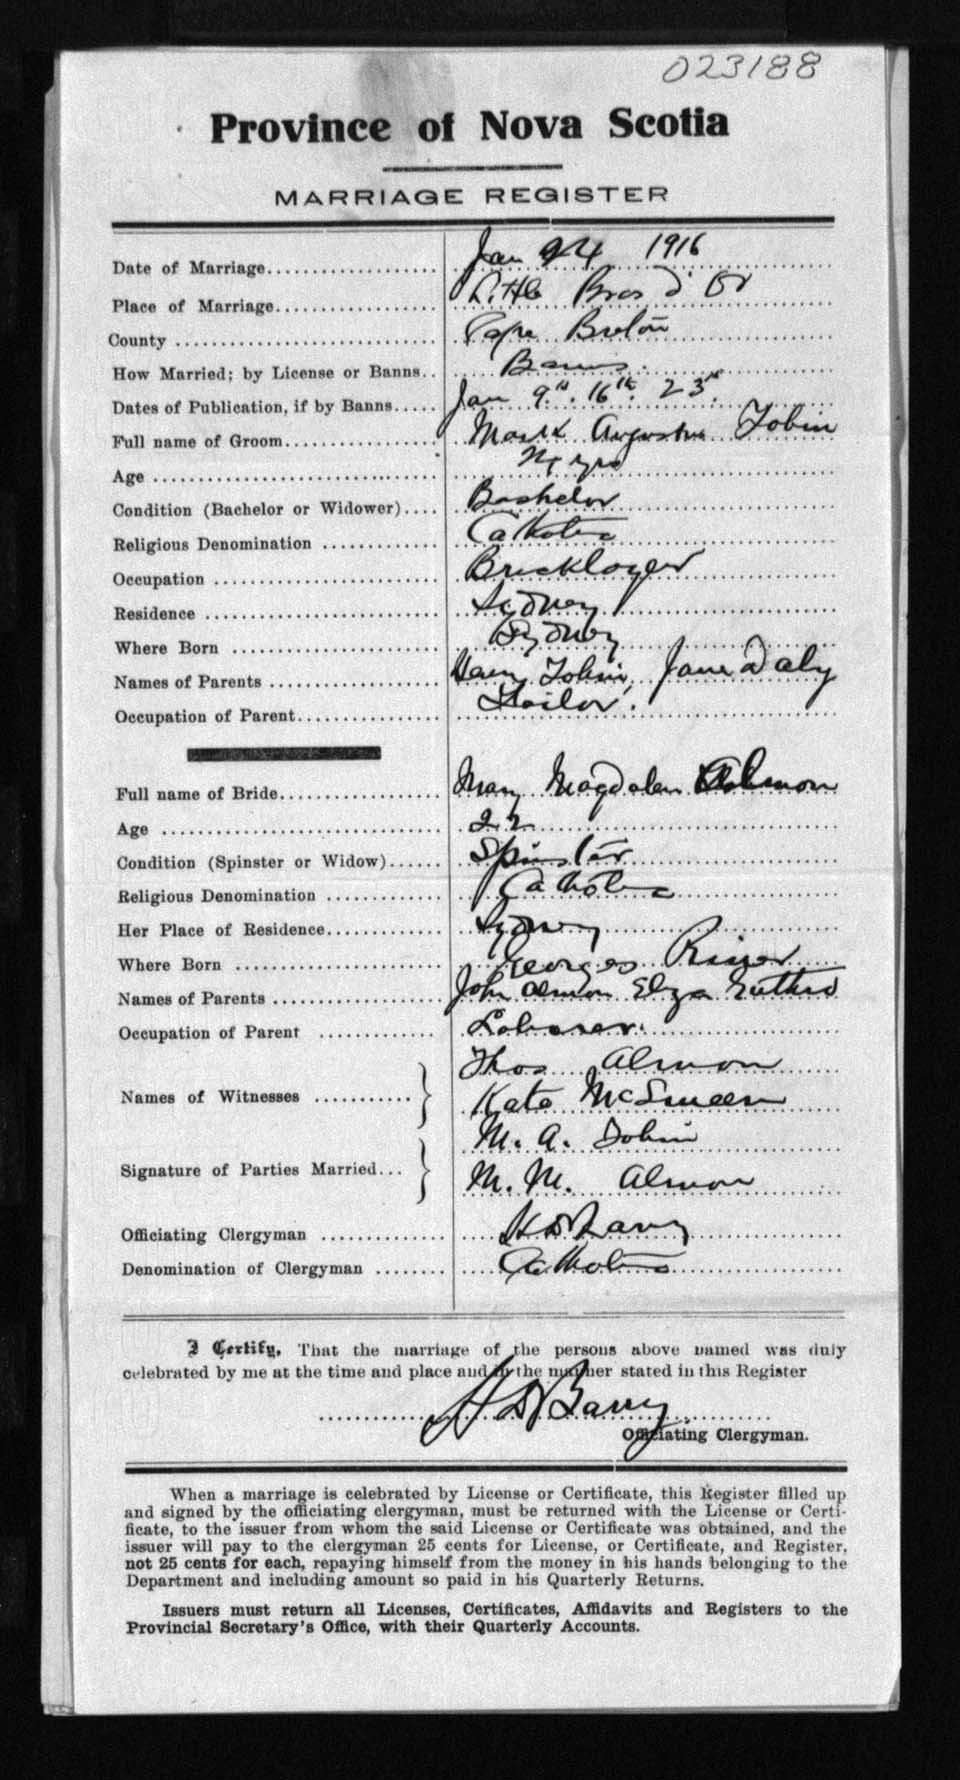 023188
Province of Nova Scotia
MARRIAGE REGISTER
Date of Marriage Jan 24 1916
Place of Marriage Little Bras d'Or
County Cape Breton
How Married; by License or Banns Banns
Dates of Publication, if by Banns Jan 9th. 16th. 23rd.
Full name of Groom Mark Augustus Tobin
Age yrs
Condition (Bachelor or Widower) Bachelor
Religious Denomination Catholic
Occupation Bricklayer
Residence Sydney
Where Born Sydney
Names of Parents Tobin, Jane Daly
Occupation of Parent Tailor.
Full name of Bride Mary Magdalen Almon
Age 22
Condition (Spinster or Widow) Spinster
Religious Denomination Catholic
Her Place of Residence Sydney
Where Born Georges River
Names of Parents John Almon Eliza
Occupation of Parent Laborer.
Names of Witnesses Thos Almon
Kate McSween
Signature of Parties Married M. A. Tobin
M. M. Almon
Officiating Clergyman H D Barry
Denomination of Clergyman Catholic
I Certify, That the marriage of the persons above named was duly
celebrated by me at the time and place and in the manner stated in this Register
H D Barry
Officiating Clergyman.
When a marriage is celebrated by License or Certificate, this Register filled up
and signed by the officiating clergyman, must be returned with the License or Certi-
ficate, to the issuer from whom the said License or Certificate was obtained, and the
issuer will pay to the clergyman 25 cents for License, or Certificate, and Register,
not 25 cents for each, repaying himself from the money in his hands belonging to the
Department and including amount so paid in his Quarterly Returns.
Issuers must return all Licenses, Certificates, Affidavits and Registers to the
Provincial Secretary's Office, with their Quarterly Accounts.